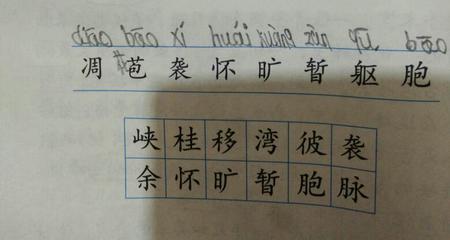 diāo bāo xí huái kuàng zàn qū bāo
凋 苞 袭 怀 旷 暂 躯 胞
峡 桂 移 湾 彼 袭
余 怀 旷 暂 胞 脉